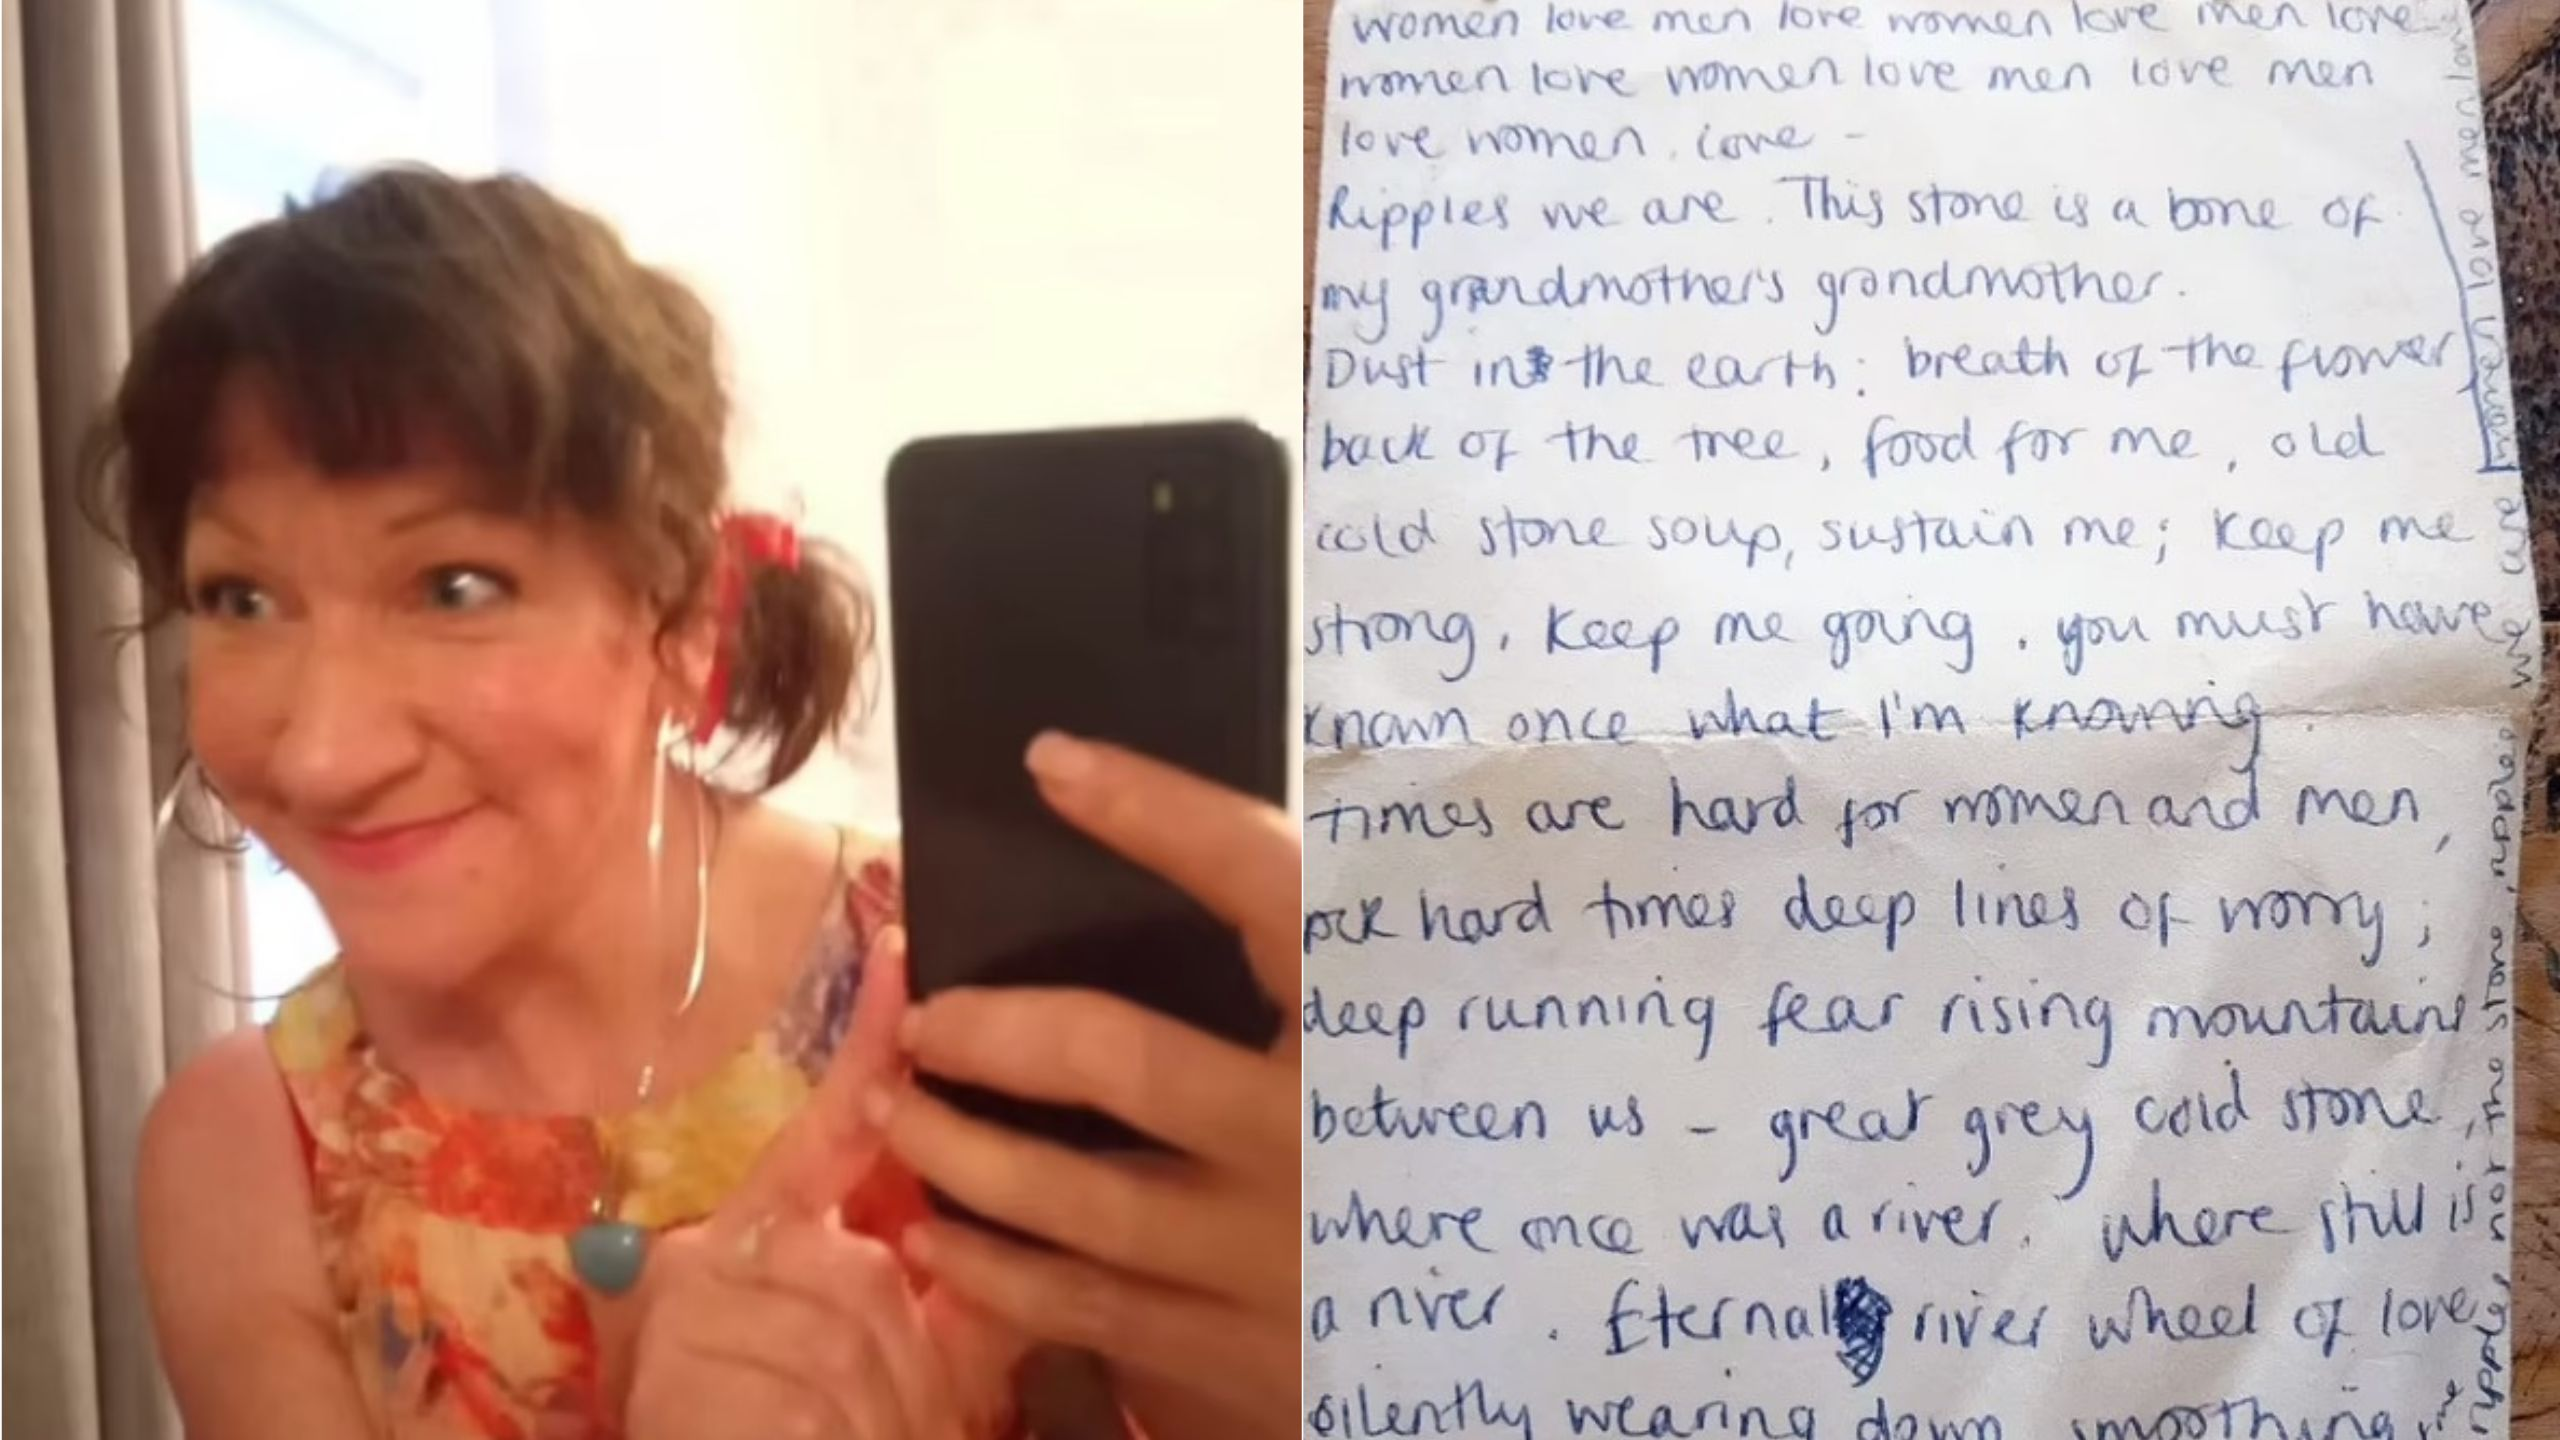 women love men love women love men love
women love women love men love men
love women. Love -
Ripples we are. This stone is a bone of
my grandmother's grandmother.
Dust in the earth: breath of the flower,
back of the tree, food for me, old
cold stone soup, sustain me; keep me
strong, keep me going. you must have
known once what I'm knowing.
times are hard for women and men,
rock hard times deep lines of worry;
deep running fear rising mountains
between us - great grey cold stone,
where once was a river. where still is
a river. Eternal river wheel of love
silently wearing down smoothing
ripples not the stone, ripples we are women love and men